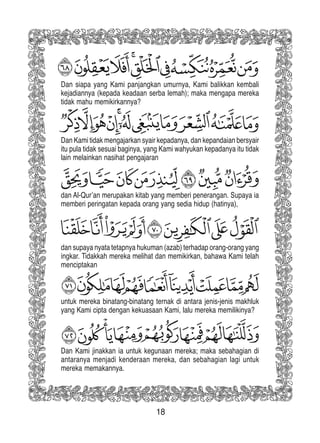 وَمَن نُّعَمِّرْهُ نُنَكِّسْهُ فِى ٱلْخَلْقِ ۖ أَفَلَا يَعْقِلُونَ ٦٨
Dan siapa yang Kami panjangkan umurnya, Kami balikkan kembali
kejadiannya (kepada keadaan serba lemah); maka mengapa mereka
tidak mahu memikirkannya?
وَمَا عَلَّمْنَٰهُ ٱلشِّعْرَ وَمَا يَنۢبَغِى لَهُۥٓ ۚ إِنْ هُوَ إِلَّا ذِكْرٌ
Dan Kami tidak mengajarkan syair kepadanya, dan kepandaian bersyair
itu pula tidak sesuai baginya, yang Kami wahyukan kepadanya itu tidak
lain melainkan nasihat pengajaran
وَقُرْءَانٌ مُّبِينٌ ٦٩ لِّيُنذِرَ مَن كَانَ حَيًّا وَيَحِقَّ
dan Al-Qur’an merupakan kitab yang memberi penerangan. Supaya ia
memberi peringatan kepada orang yang sedia hidup (hatinya),
ٱلْقَوْلُ عَلَى ٱلْكَٰفِرِينَ ٧٠ أَوَلَمْ يَرَوْا۟ أَنَّا خَلَقْنَا
dan supaya nyata tetapnya hukuman (azab) terhadap orang-orang yang
ingkar. Tidakkah mereka melihat dan memikirkan, bahawa Kami telah
menciptakan
لَهُم مِّمَّا عَمِلَتْ أَيْدِينَآ أَنْعَٰمًا فَهُمْ لَهَا مَٰلِكُونَ ٧١
untuk mereka binatang-binatang ternak di antara jenis-jenis makhluk
yang Kami cipta dengan kekuasaan Kami, lalu mereka memilikinya?
وَذَلَّلْنَٰهَا لَهُمْ فَمِنْهَا رَكُوبُهُمْ وَمِنْهَا يَأْكُلُونَ ٧٢
Dan Kami jinakkan ia untuk kegunaan mereka; maka sebahagian di
antaranya menjadi kenderaan mereka, dan sebahagian lagi untuk
mereka memakannya.
18